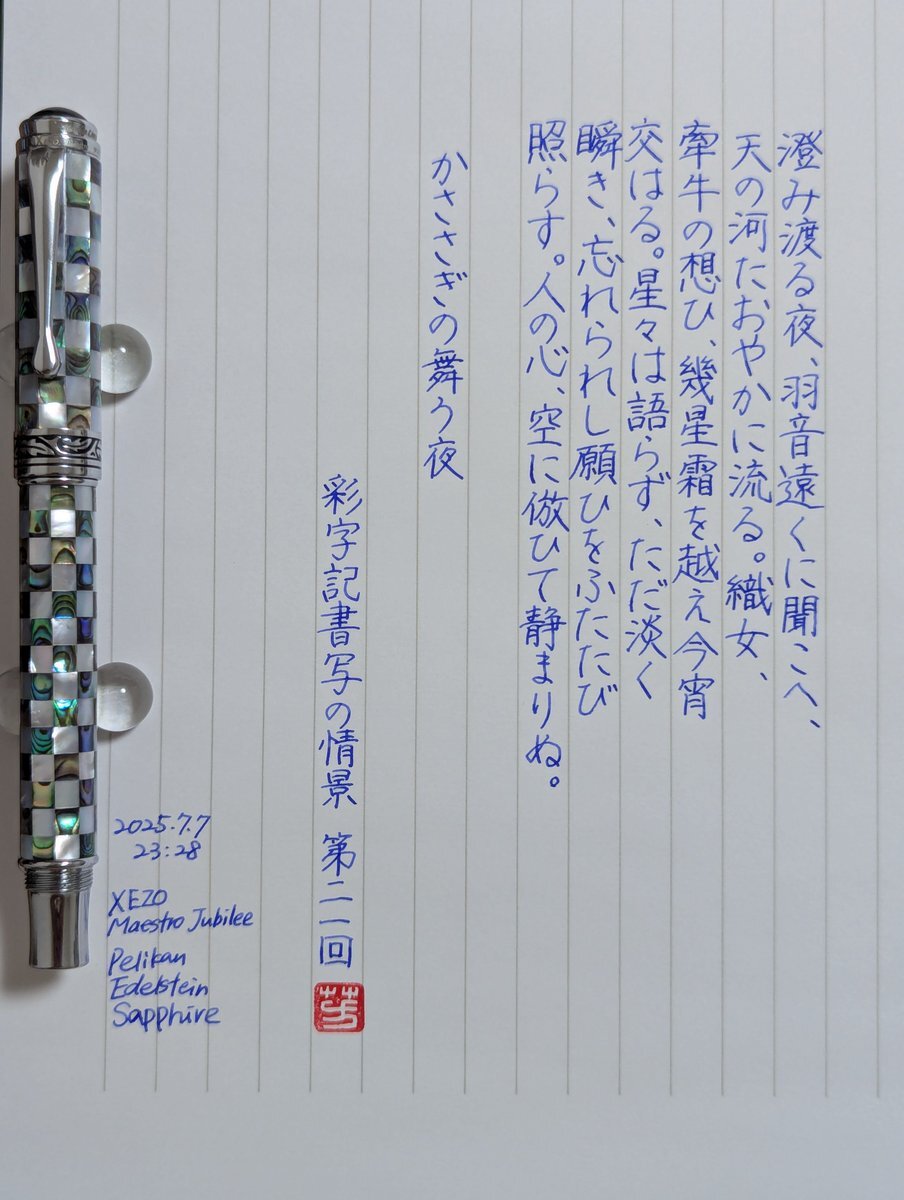 澄み渡る夜、羽音遠くに聞こへ、
天の河たおやかに流る。織女、
牽牛の想ひ、幾星霜を越え今宵
交はる。星々は語らず、ただ淡く
瞬き、忘れられし願ひをふたたび
照らす。人の心、空に倣ひて静まりぬ。
かささぎの舞う夜
彩字記書写の情景 第二一回
芳
2025.7.7
23:28
XEZO
Maestro Jubilee
Pelikan
Edelstein
Sapphire